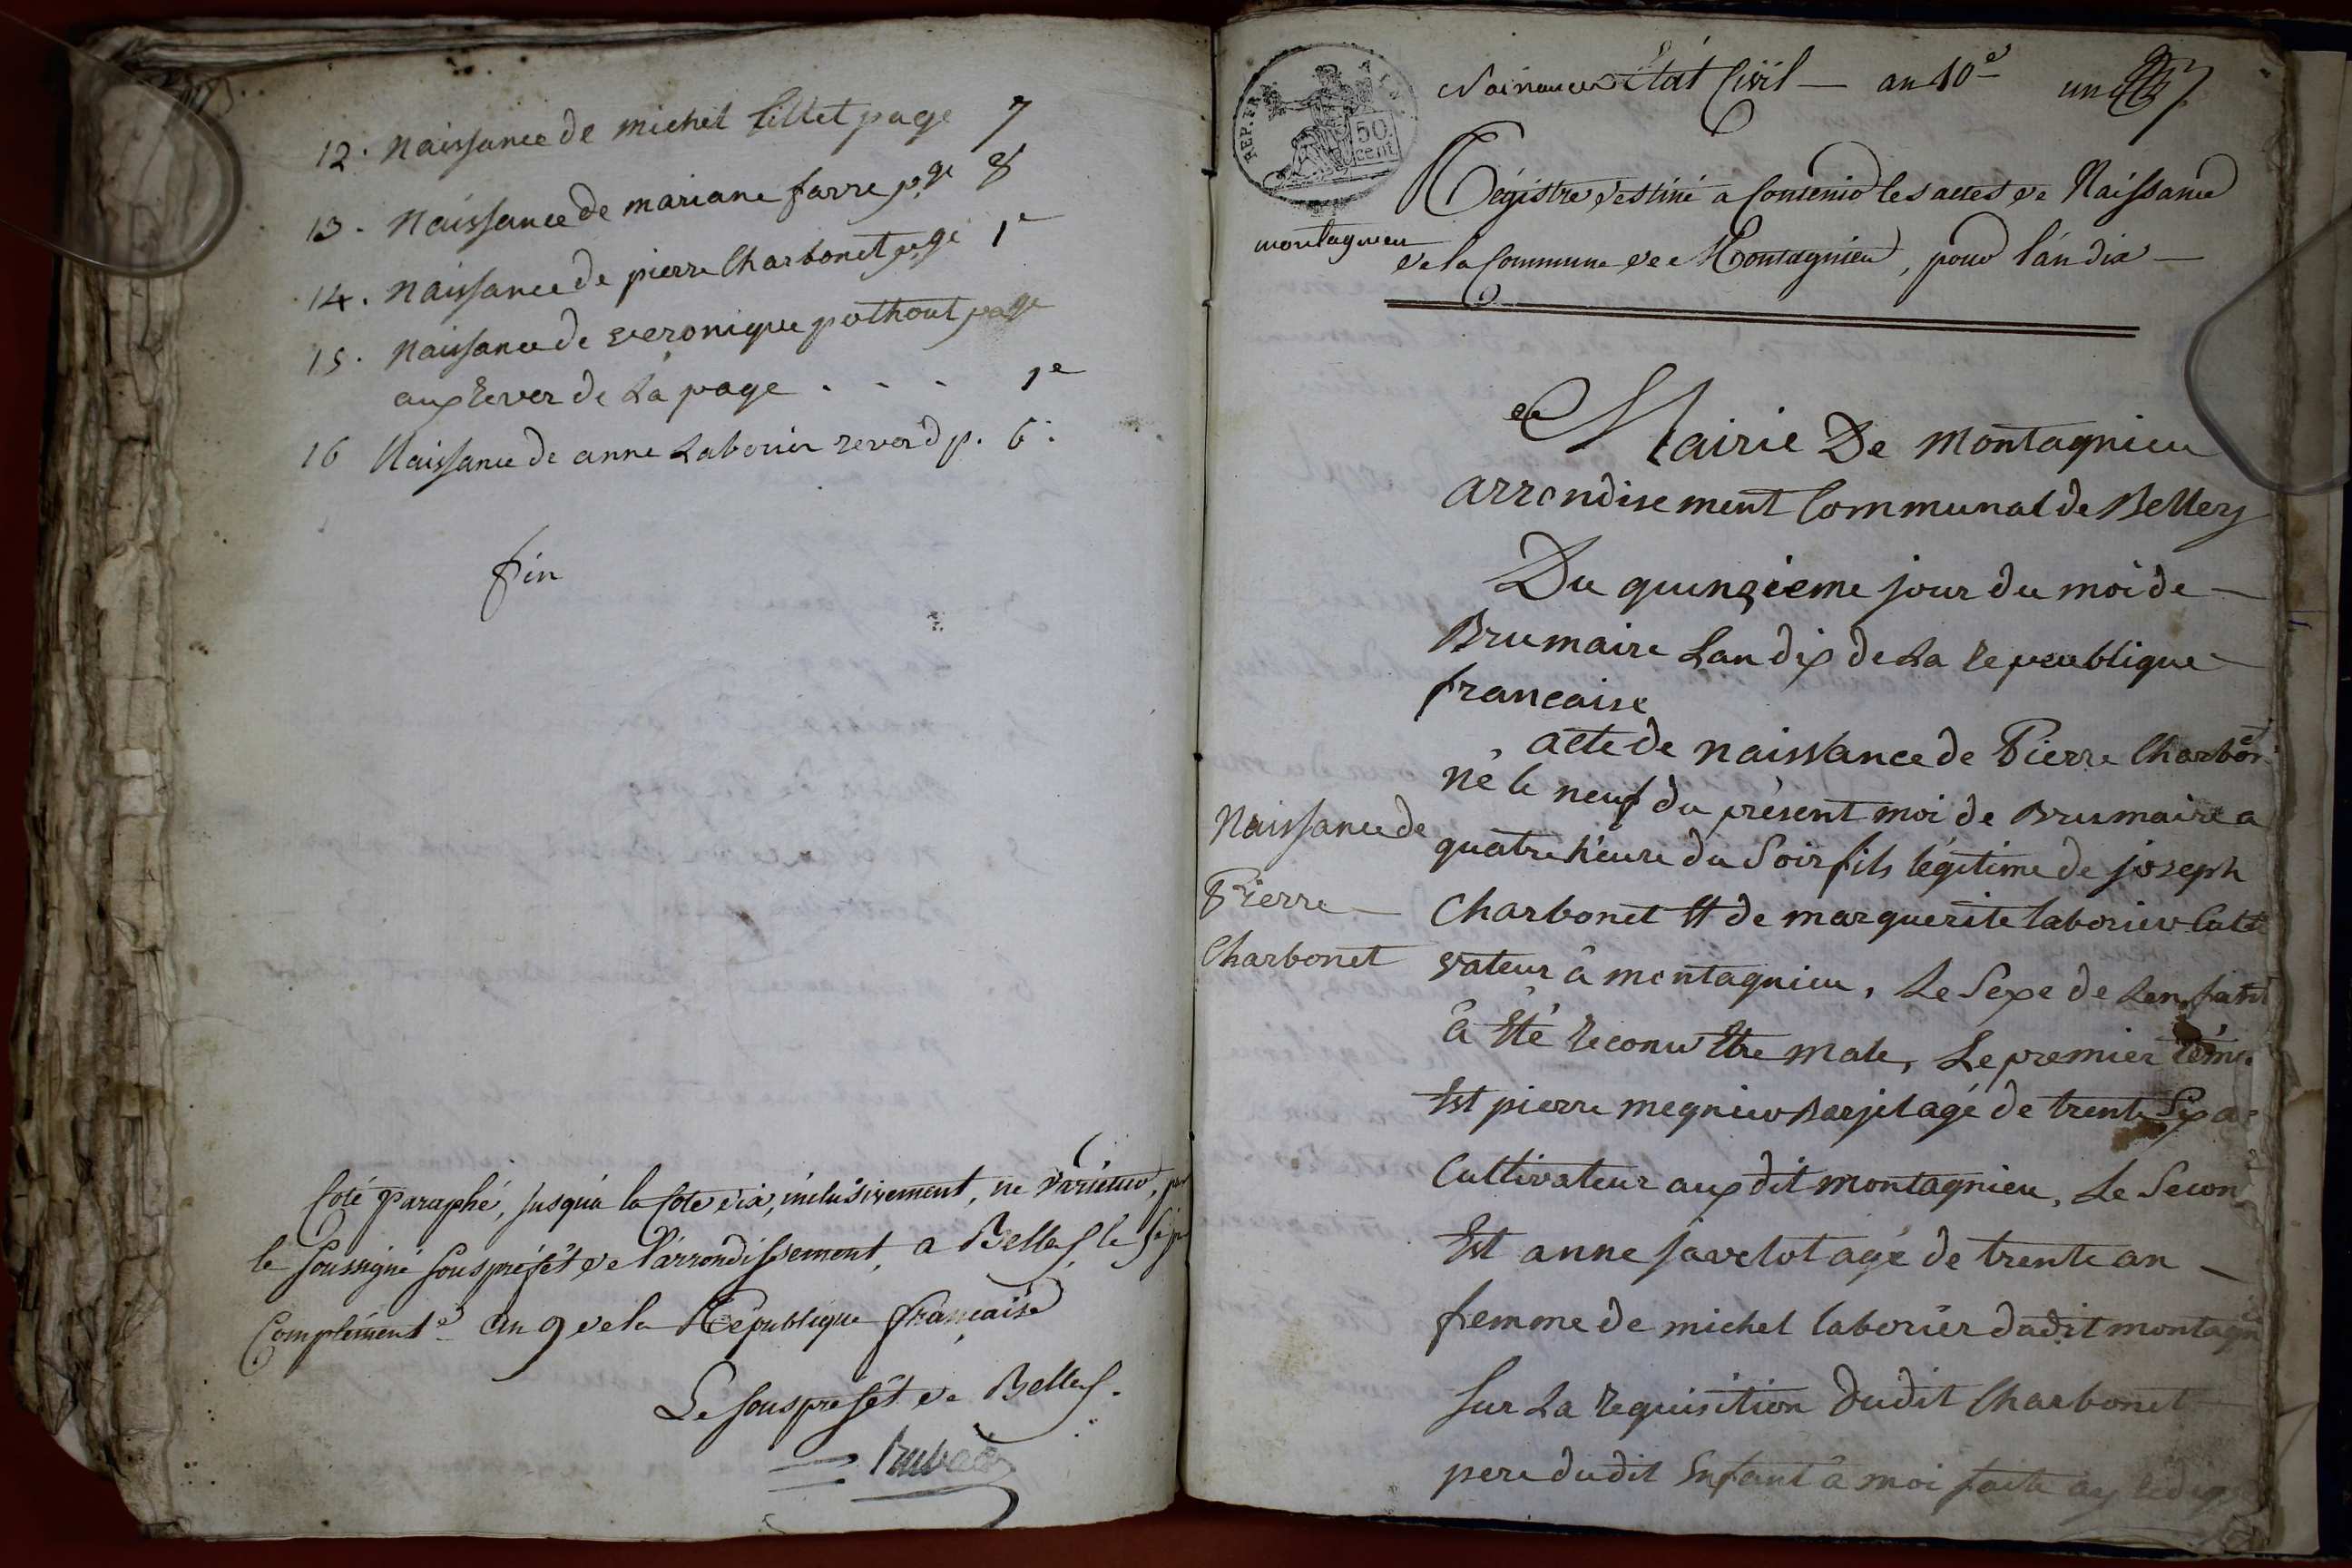 12. Naissance de michel Tillet page 7
13. Naissance de mariane farre pge 8
14. Naissance de pierre Charbonet pge 1e
15. Naissance de veronique pothout page
aux rever de La page . . . 1e
16 Naissance de anne Laborier reverd p. 6.
fin
Coté paraphé, jusqu'à la Cote dix, inclusivement, ne varietur, par
le soussigné sous préfét de l'arrondissement, a Belley, le 5e jr
Complément.e an 9 de la République française
Le sous préfét de Belley.
REP. FRA
50 cent
Naissances État Civil — an 10e un
Régistre destiné a Contenir les actes de Naissance
montagnieu
de la Commune de Montagnieu, pour l'an dix —
Mairie De Montagnieu
arrondisement Communal de Belley
Du quinzieme jour du moi de —
Brumaire Lan dix de La republique
francaise
acte de naissance de Pierre Charbonet
né le neuf du présent moi de Brumaire a
quatre heure du Soir fils légitime de joseph
Charbonet et de marguerite laborier Culti
vateur â montagnieu, Le Sexe de Lenfant
â été reconu être male, Le premier témo
Est pierre megnieu Barjil agé de trente Six a
Cultivateur aux dit montagnieu, Le Secon
Est anne javelot agé de trente an —
femme de michel laborier dudit montagn
Sur La requisition dudit Charbonet
pere dudit Enfant â moi faite ay redig
Naissance de
Pierre —
Charbonet